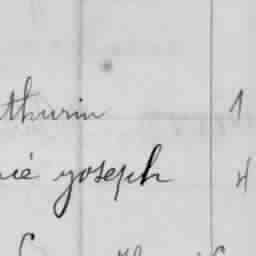 thurin 1
ié yoseph 4